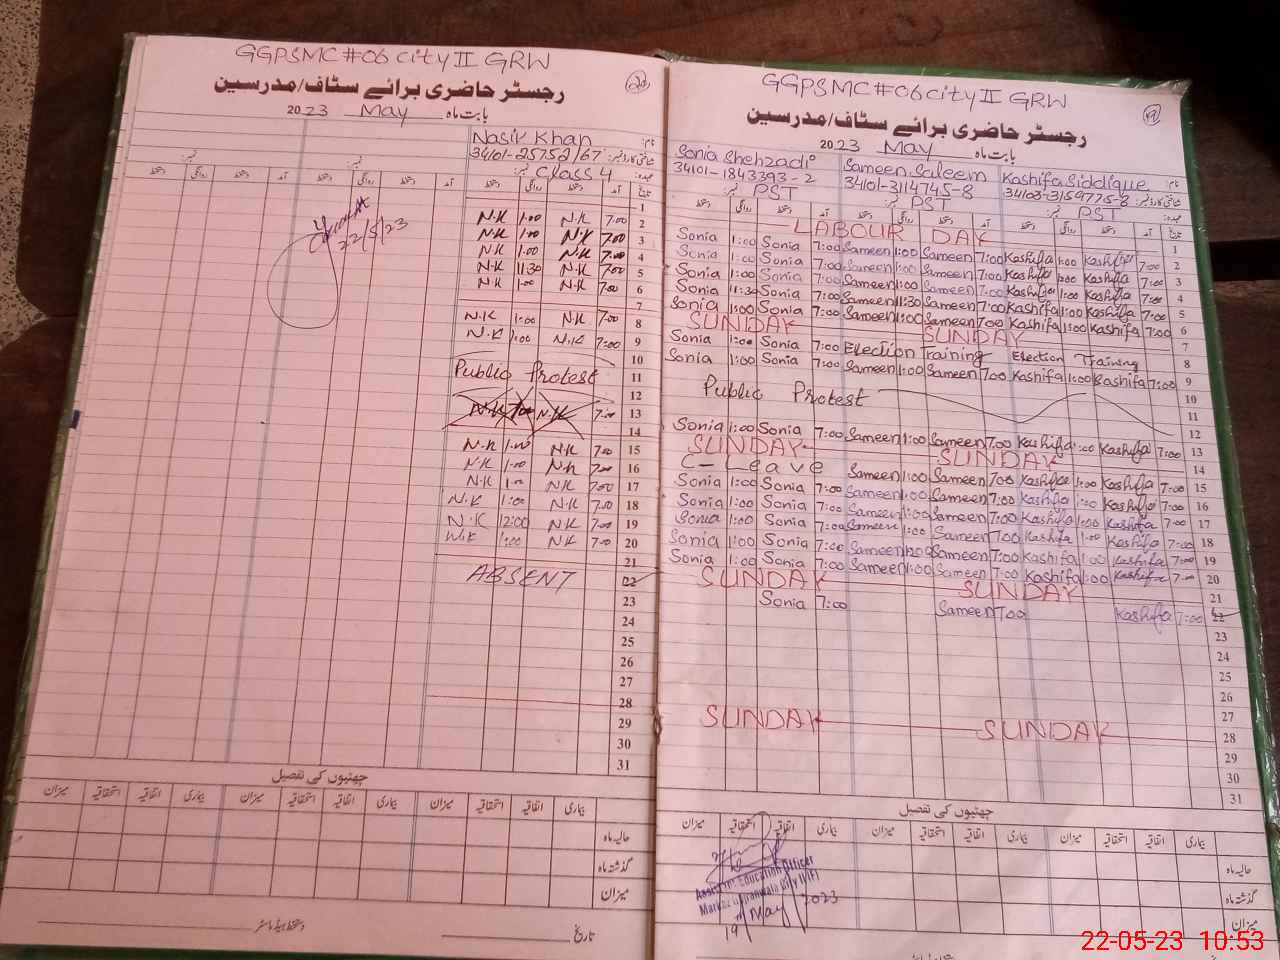 GGPSMC#06 City II GRW
20
رجسٹر حاضری برائے سٹاف/مدرسین
بابت ماہ May 2023
نام: Nasir Khan
شناختی کارڈ نمبر: 34101-25752/67
عہدہ: Class 4
تاریخ آمد دستخط روانگی دستخط آمد دستخط روانگی دستخط آمد دستخط روانگی دستخط
1
N.K 1.00 N.K 7.00 2
N.K 1.00 N.K 7.00 3
N.K 1.00 N.K 7.00 4
N.K 11.30 N.K 7.00 5
N.K 1.00 N.K 7.00 6
7
N.K 1:00 N.K 7.00 8
N.K 1:00 N.K 7:00 9
10
Public Protest 11
12
N.K N.K 7.00 13
14
N.K 1.00 N.K 7.00 15
N.K 1.00 N.K 7.00 16
N.K 1.00 N.K 7.00 17
N.K 1:00 N.K 7.00 18
N.K 12:00 N.K 7.00 19
N.K 1:00 N.K 7.00 20
21
ABSENT 22
23
24
25
26
27
28
29
30
31
22/5/23
چھٹیوں کی تفصیل
بیماری اتفاقیہ استحقاقیہ میزان بیماری اتفاقیہ استحقاقیہ میزان بیماری اتفاقیہ استحقاقیہ میزان
حالیہ ماہ
گذشتہ ماہ
میزان
تاریخ دستخط ہیڈ ماسٹر
GGPSMC#06 City II GRW
19
رجسٹر حاضری برائے سٹاف/مدرسین
بابت ماہ May 2023
نام: Sonia Shehzadi Sameen Saleem Kashifa Siddique
شناختی کارڈ نمبر: 34101-1843393-2 34101-3114745-8 34103-3159775-8
عہدہ: PST PST PST
تاریخ آمد دستخط روانگی دستخط آمد دستخط روانگی دستخط آمد دستخط روانگی دستخط
LABOUR DAY 1
Sonia 1:00 Sonia 7:00 Sameen 1:00 Sameen 7:00 Kashifa 1:00 Kashifa 7:00 2
Sonia 1:00 Sonia 7:00 Sameen 1:00 Sameen 7:00 Kashifa 1:00 Kashifa 7:00 3
Sonia 1:00 Sonia 7:00 Sameen 1:00 Sameen 7:00 Kashifa 1:00 Kashifa 7:00 4
Sonia 11:30 Sonia 7:00 Sameen 11:30 Sameen 7:00 Kashifa 11:00 Kashifa 7:00 5
Sonia 1:00 Sonia 7:00 Sameen 1:00 Sameen 7:00 Kashifa 1:00 Kashifa 7:00 6
SUNDAY SUNDAY 7
Sonia 1:00 Sonia 7:00 Election Training Election Training 8
Sonia 1:00 Sonia 7:00 Sameen 1:00 Sameen 7.00 Kashifa 1:00 Kashifa 7:00 9
10
Public Protest 11
12
Sonia 1:00 Sonia 7:00 Sameen 1:00 Sameen 7.00 Kashifa 1:00 Kashifa 7:00 13
SUNDAY SUNDAY 14
C-Leave Sameen 1:00 Sameen 7:00 Kashifa 1:00 Kashifa 7:00 15
Sonia 1:00 Sonia 7:00 Sameen 1:00 Sameen 7:00 Kashifa 1:00 Kashifa 7:00 16
Sonia 1:00 Sonia 7:00 Sameen 1:00 Sameen 7:00 Kashifa 1:00 Kashifa 7:00 17
Sonia 1:00 Sonia 7:00 Sameen 1:00 Sameen 7:00 Kashifa 1:00 Kashifa 7:00 18
Sonia 1:00 Sonia 7:00 Sameen 12:00 Sameen 7:00 Kashifa 1:00 Kashifa 7:00 19
Sonia 1:00 Sonia 7:00 Sameen 1:00 Sameen 7:00 Kashifa 1:00 Kashifa 7:00 20
SUNDAY SUNDAY 21
Sonia 7:00 Sameen 7.00 Kashifa 7:00 22
23
24
25
26
27
SUNDAY SUNDAY 28
29
30
31
چھٹیوں کی تفصیل
بیماری اتفاقیہ استحقاقیہ میزان بیماری اتفاقیہ استحقاقیہ میزان بیماری اتفاقیہ استحقاقیہ میزان
حالیہ ماہ
گذشتہ ماہ
میزان
Assistant Education Officer
Markaz Gujranwala City II (F)
19 May 2023
22-05-23 10:53